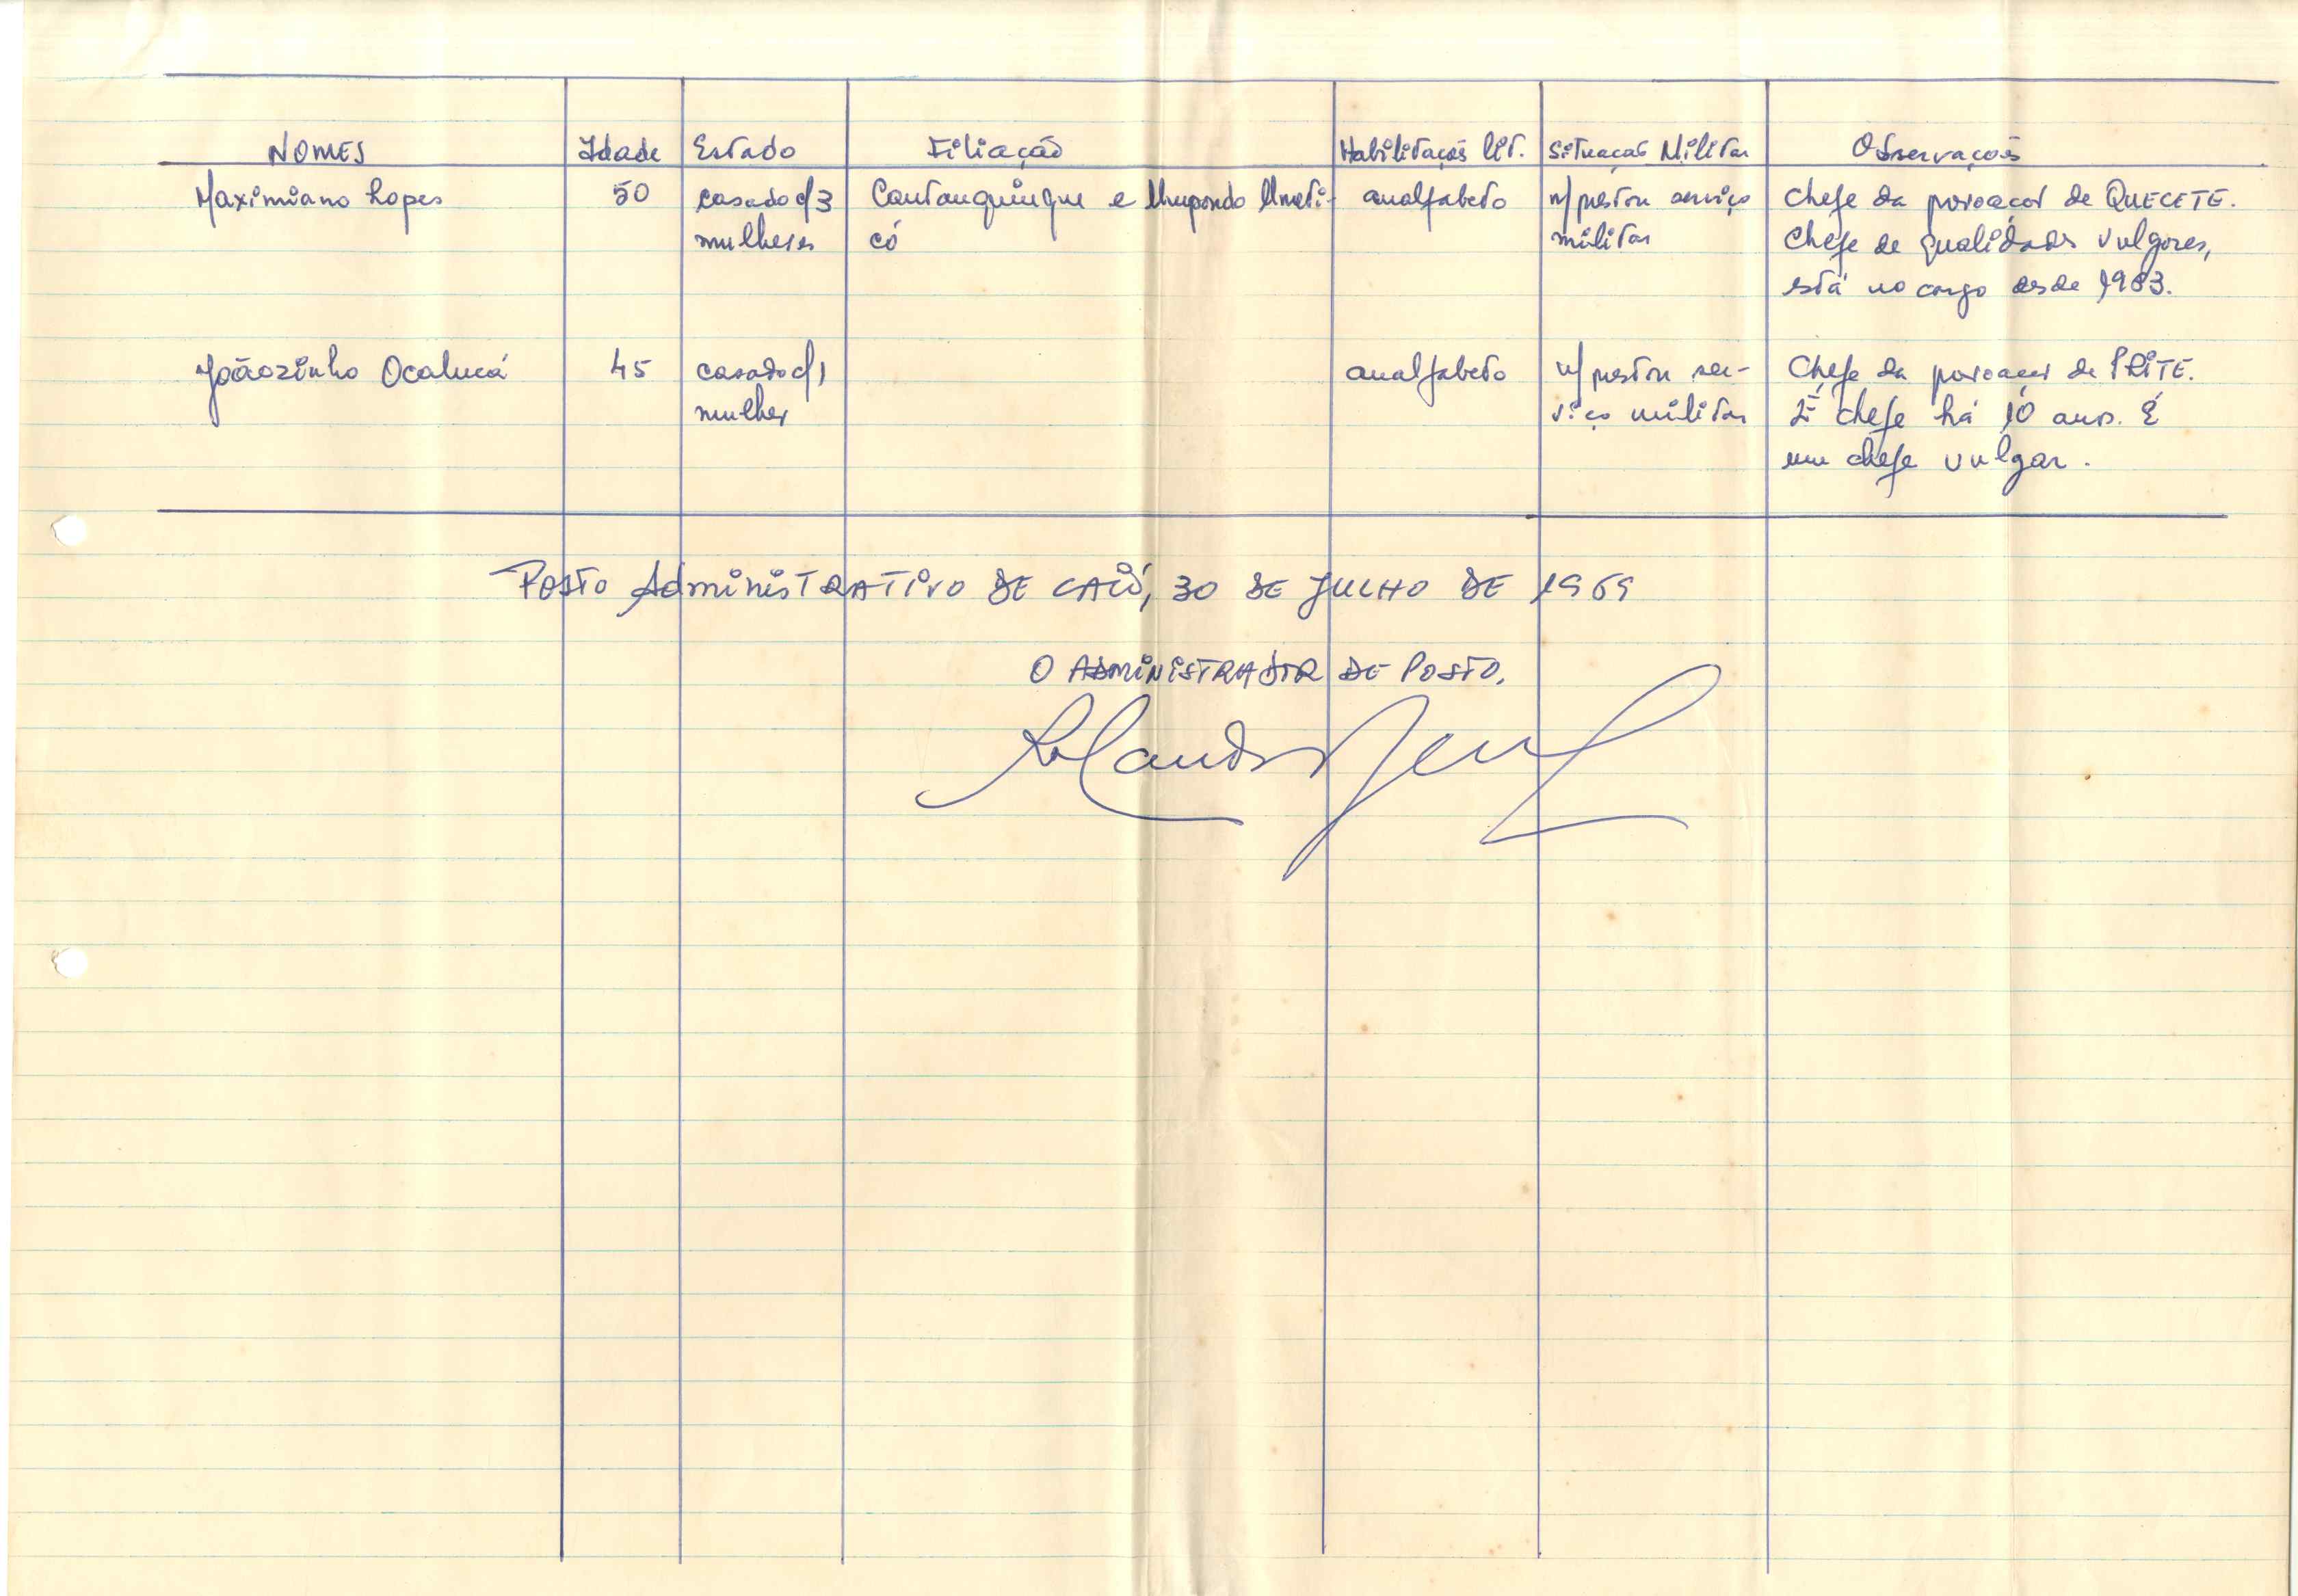 NOMES Idade Estado Filiação Habilitações lit. Situação Militar Observações
Maximiano Lopes 50 casado c/3 Cantanquinque e analfabeto n/prestou serviço Chefe da povoação de QUECETE.
mulheres có militar Chefe de qualidades vulgares,
está no cargo desde 1963.
Joãozinho Ocalucá 45 casado c/1 analfabeto n/prestou ser- Chefe da povoação de
mulher viço militar É chefe há 10 anos. É
um chefe vulgar.
POSTO AdministRATivo DE CAIÓ, 30 DE JULHO DE 1969
O ADMINISTRADOR DE POSTO,